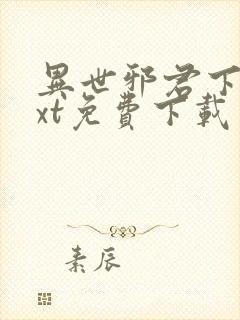 異世邪君下
xt免費下載
素辰